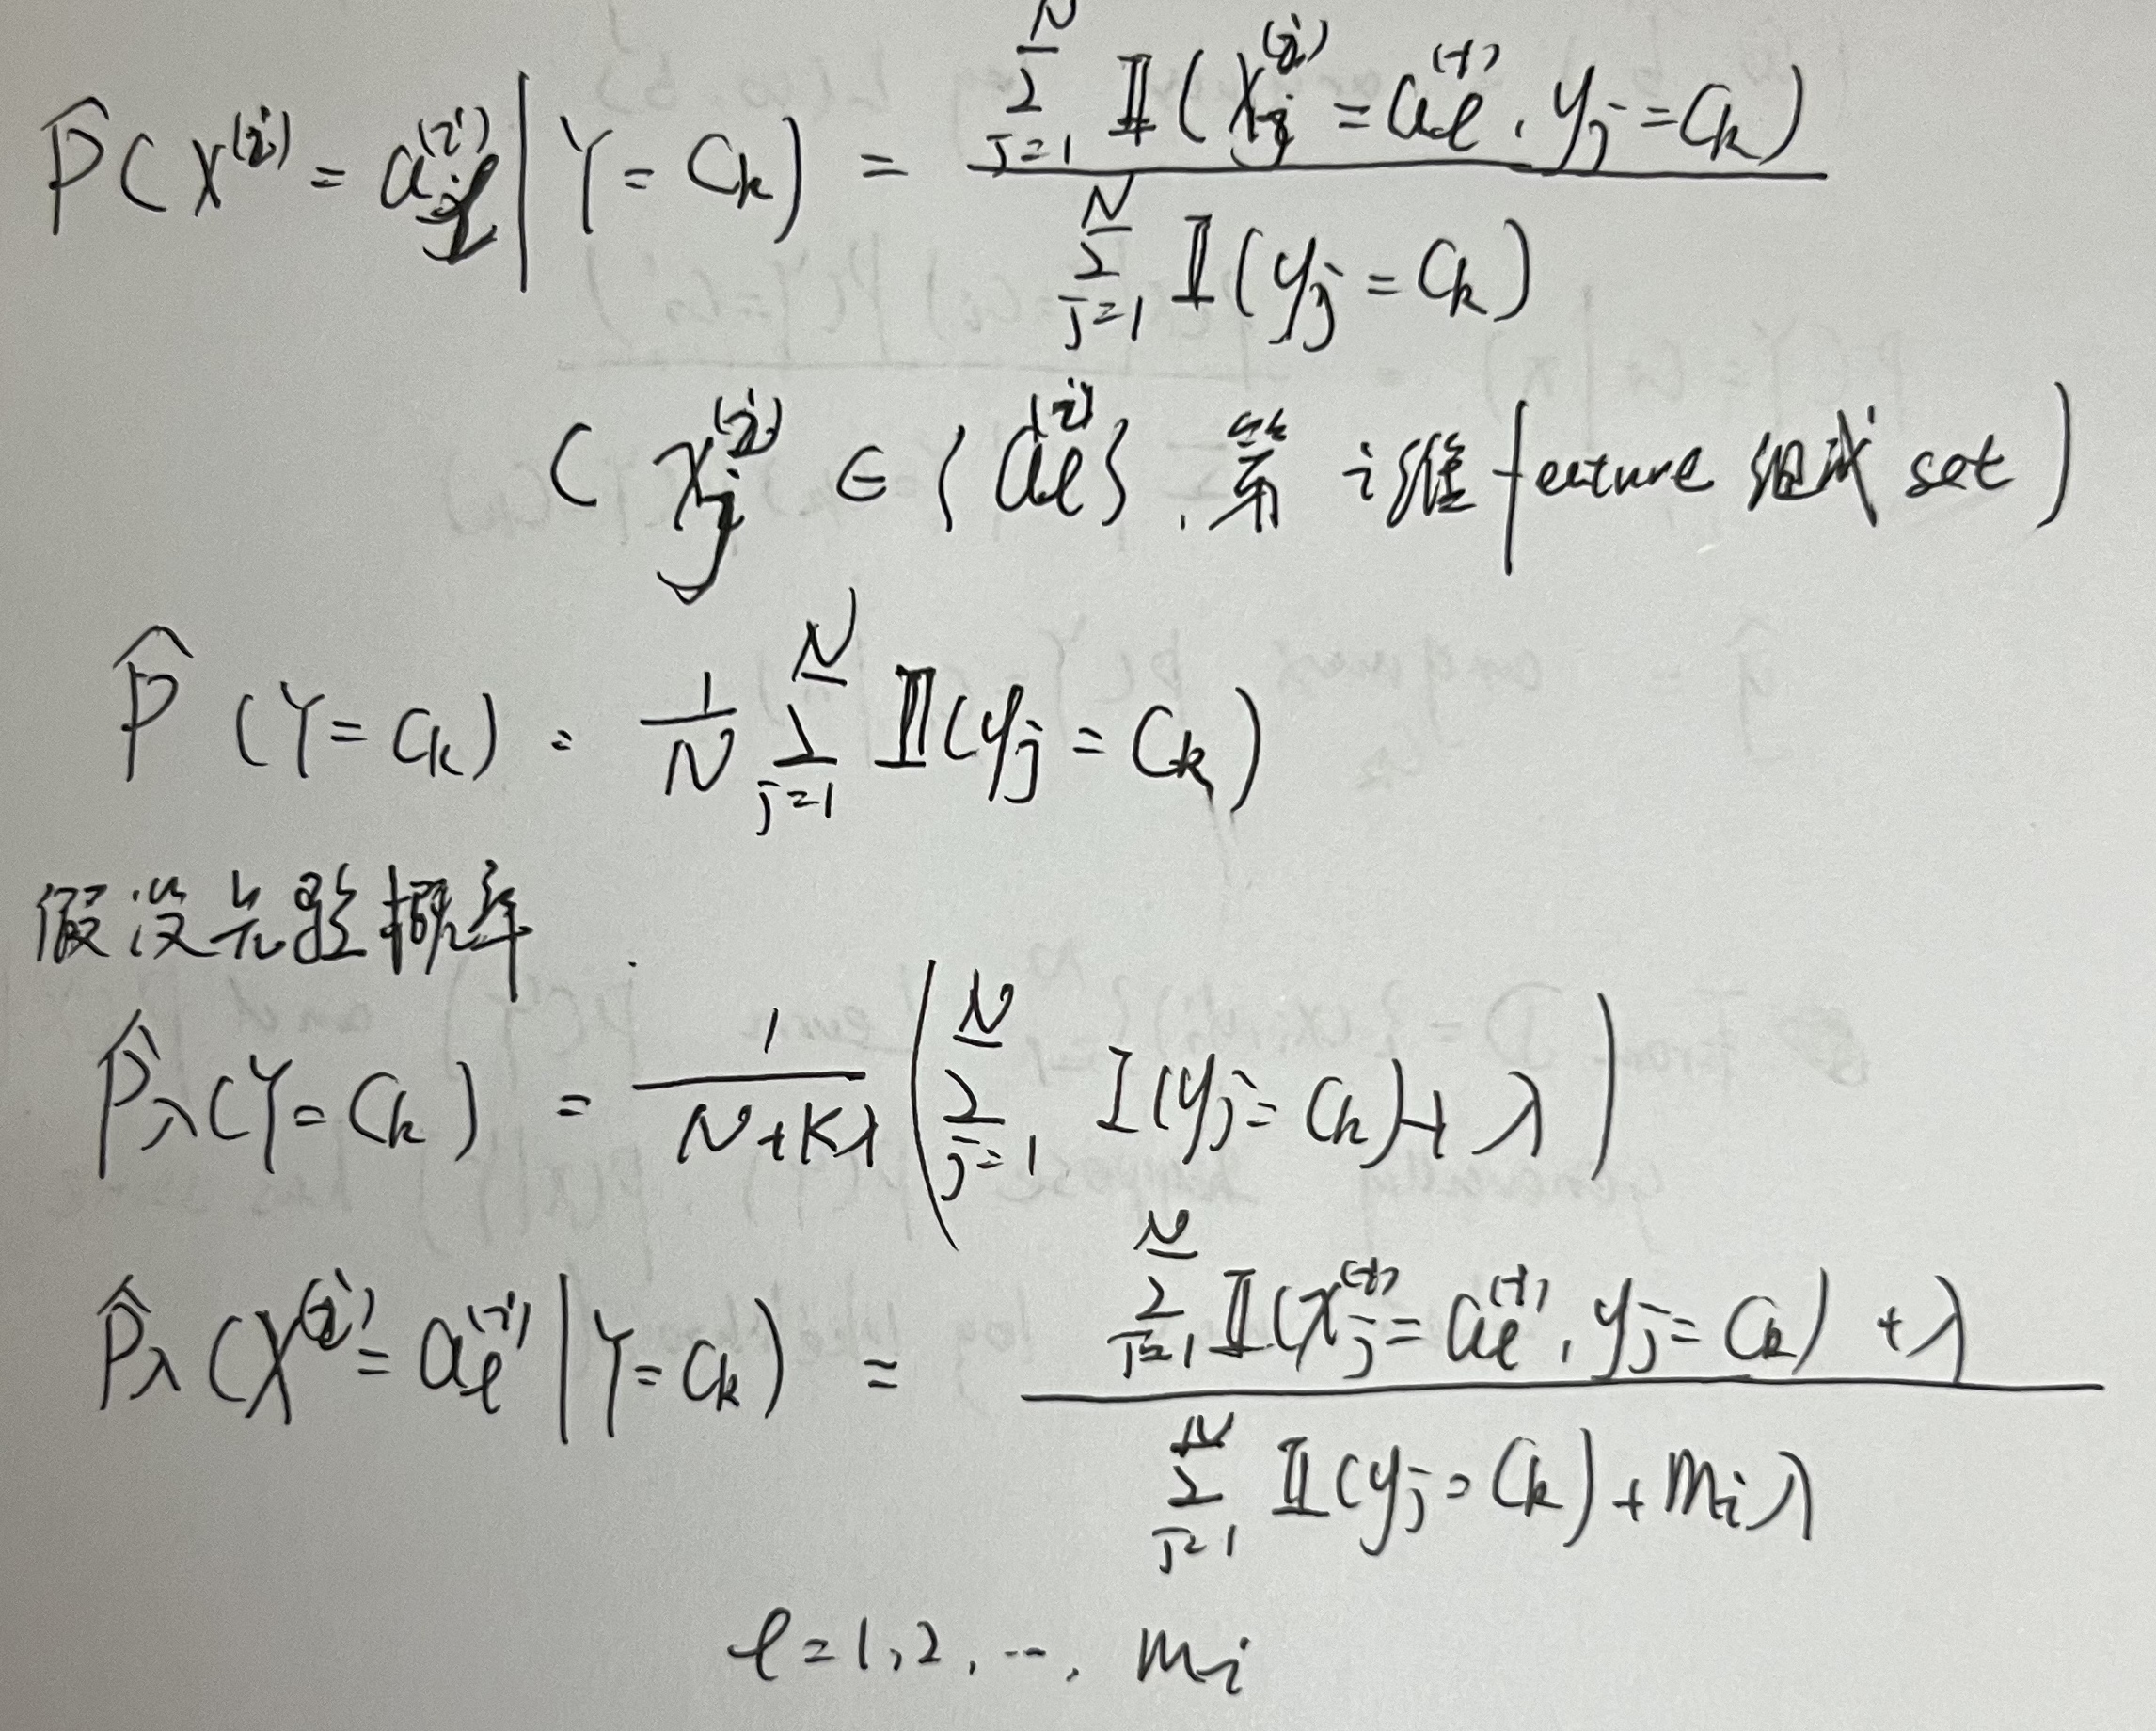 P̂(X^{(i)} = a_ℓ^{(i)} | Y = C_k) = \frac{\sum_{j=1}^{N} 𝕀(x_j^{(i)} = a_ℓ^{(i)}, y_j = C_k)}{\sum_{j=1}^{N} 𝕀(y_j = C_k)}
(x_j^{(i)} ∈ {a_ℓ^{(i)}}, 第 i 维 feature 组成 set)
P̂(Y = C_k) = \frac{1}{N} \sum_{j=1}^{N} 𝕀(y_j = C_k)
假设先验概率
P̂_λ(Y = C_k) = \frac{1}{N+Kλ} (\sum_{j=1}^{N} I(y_j = C_k) + λ)
P̂_λ(X^{(i)} = a_ℓ^{(i)} | Y = C_k) = \frac{\sum_{j=1}^{N} 𝕀(x_j^{(i)} = a_ℓ^{(i)}, y_j = C_k) + λ}{\sum_{j=1}^{N} 𝕀(y_j = C_k) + m_i λ}
ℓ = 1, 2, ..., m_i